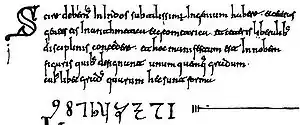 Scire debem In Indos subtilissimu Ingenium habere et ceteras
gentes eis In arithmetica et geometrica et ceteris liberalib
disciplinis concedere et hoc manifestum est In nobem
figuris quib designant unum quemq gradum
cuius libet gradus quarum hec sunt forma
9 8 7 6 5 4 3 2 1